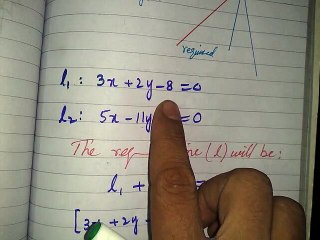 required
l₁: 3x+2y-8=0
l₂: 5x-11y =0
The (l) will be:
l₁ +
[3x+2y